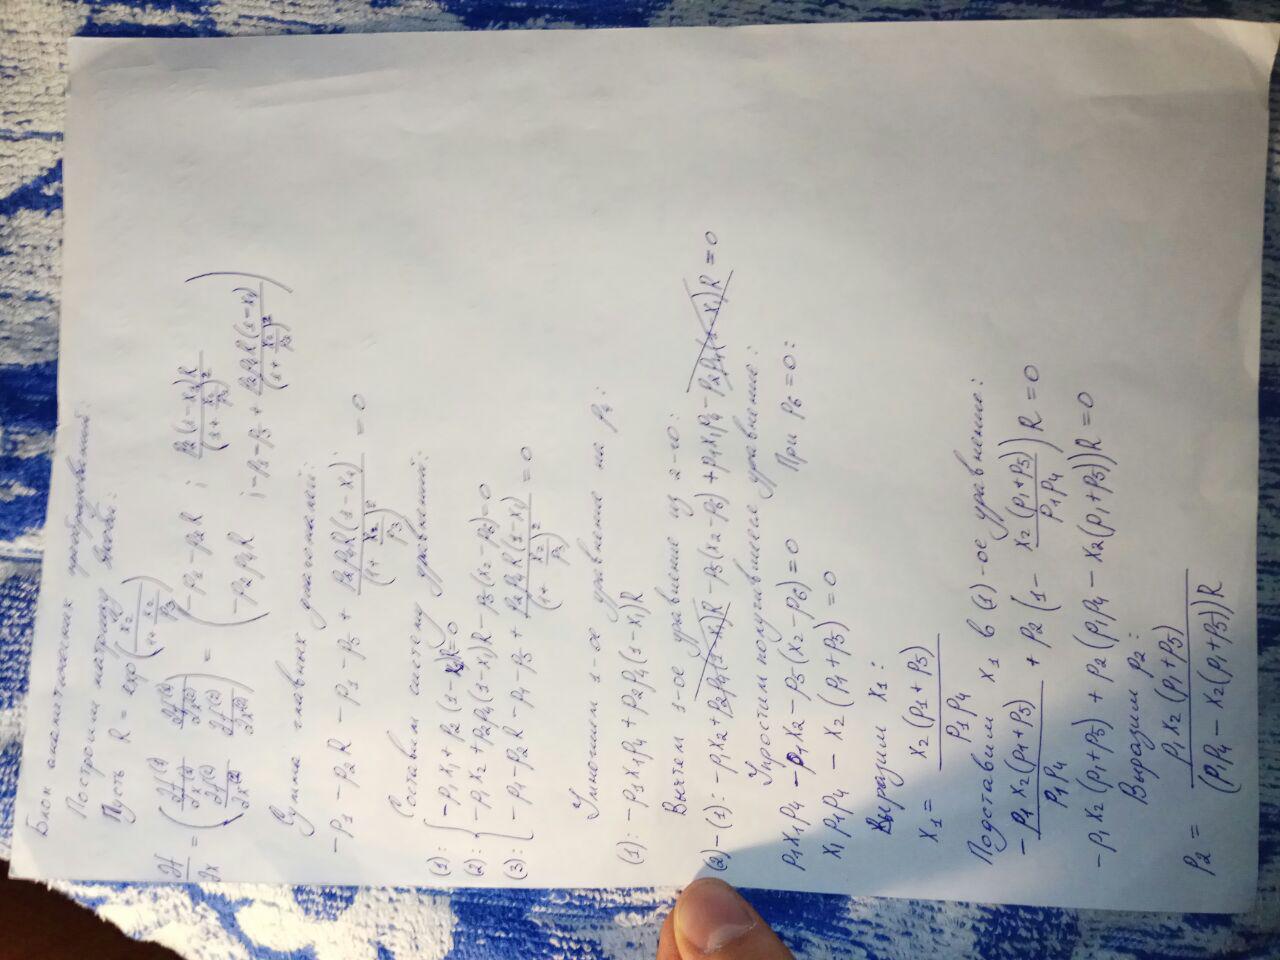 Блок аналитических преобразований:
Построим матрицу Якоби:
Пусть R = exp(x₂/(1+x₂/p₃))
∂f/∂x = (∂f⁽¹⁾/∂x⁽¹⁾ ∂f⁽¹⁾/∂x⁽²⁾ ∂f⁽²⁾/∂x⁽¹⁾ ∂f⁽²⁾/∂x⁽²⁾) = (-p₁-p₂R ; p₂(1-x₁)R/(1+x₂/p₃)²
-p₂p₄R ; -p₁-p₅+p₂p₄R(1-x₁)/(1+x₂/p₃)²)
Сумма главных диагоналей:
-p₁-p₂R-p₁-p₅+p₂p₄R(1-x₁)/(1+x₂/p₃)² = 0
Составим систему уравнений:
(1): -p₁x₁+p₂(1-x₁)R=0
(2): -p₁x₂+p₂p₄(1-x₁)R-p₅(x₂-p₆)=0
(3): -p₁-p₂R-p₁-p₅+p₂p₄R(1-x₁)/(1+x₂/p₃)² = 0
Умножим 1-ое уравнение на p₄:
(1): -p₁x₁p₄+p₂p₄(1-x₁)R
Вычтем 1-ое уравнение из 2-го:
(2)-(1): -p₁x₂+p₂p₄(1-x₁)R-p₅(x₂-p₆)+p₁x₁p₄-p₂p₄(1-x₁)R = 0
Упростим получившееся уравнение:
p₁x₁p₄-p₁x₂-p₅(x₂-p₆)=0 При p₆=0:
x₁p₁p₄-x₂(p₁+p₅)=0
Выразим x₁:
x₁ = x₂(p₁+p₅)/p₁p₄
Подставим x₁ в (1)-ое уравнение:
-p₁x₂(p₁+p₅)/p₁p₄ + p₂(1-x₂(p₁+p₅)/p₁p₄)R = 0
-p₁x₂(p₁+p₅)+p₂(p₁p₄-x₂(p₁+p₅))R=0
Выразим p₂:
p₂ = p₁x₂(p₁+p₅)/(p₁p₄-x₂(p₁+p₅))R